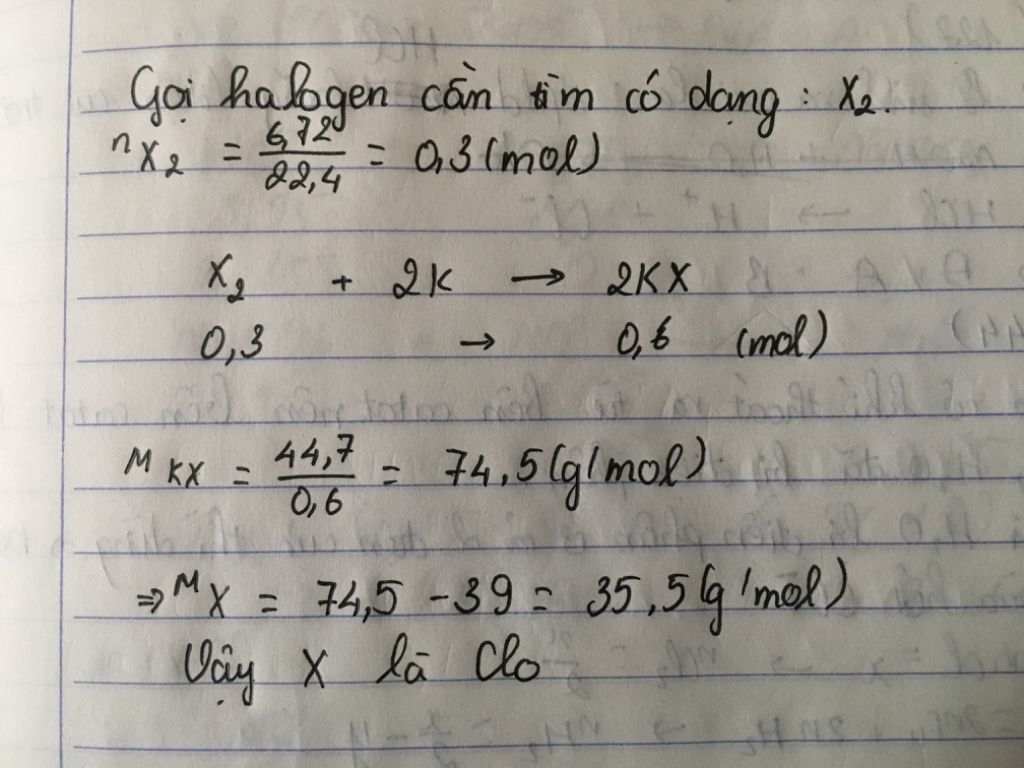 Gọi halogen cần tìm có dạng : X₂.
nX₂ = 6,72/22,4 = 0,3 (mol)
X₂ + 2K → 2KX
0,3 → 0,6 (mol)
M KX = 44,7/0,6 = 74,5 (g/mol).
⇒ M X = 74,5 - 39 = 35,5 (g/mol)
Vậy X là Clo